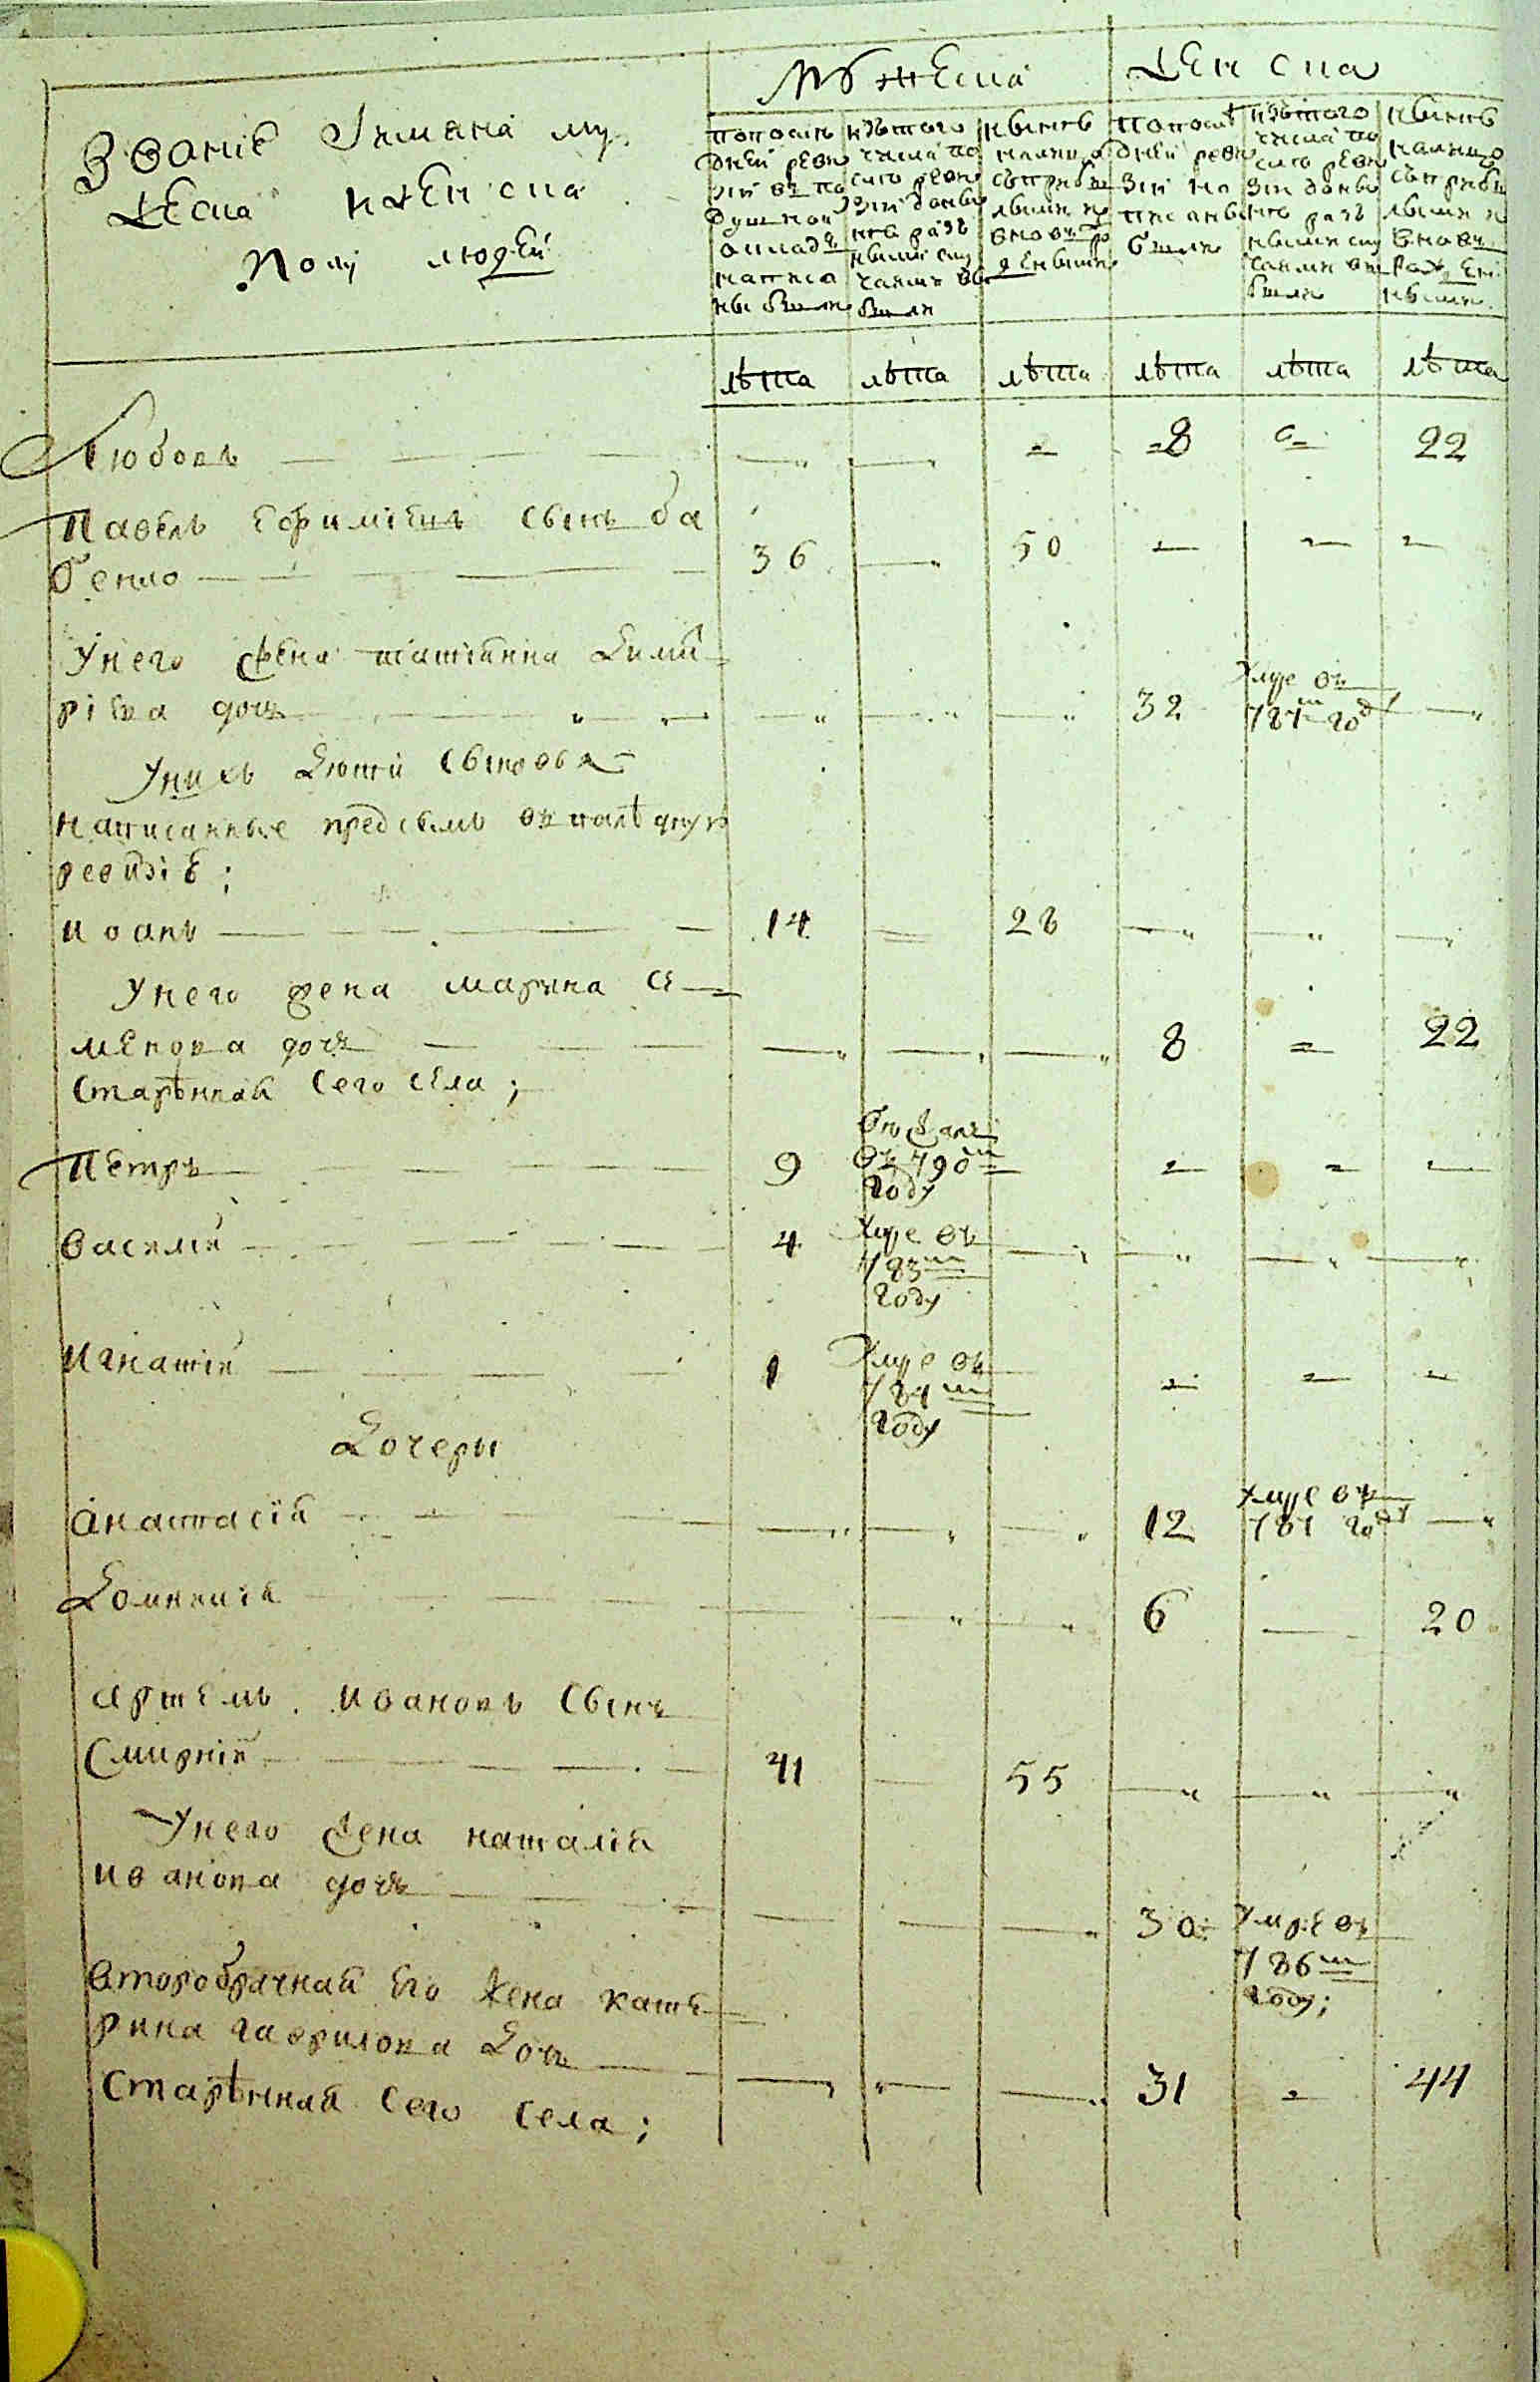 Званіе Імяна му
жеска и женска
Полу людей
Мужеска
Женска
по послѣ
дней реви
зіи въ по
душной
окладъ
написа
ны были
изътого
числа по
сію реви
зіи
разъ
были
нынѣ
налицо
съ прибы
лыми и
вновь ро
жденными
по послѣ
дней реви
зіи на
писаны
были
изътого
числа по
сію реви
зіи
разъ
были
нынѣ
налицо
съ прибы
лыми и
вновь
рожден
ными
лѣта лѣта лѣта лѣта лѣта лѣта
Любовь 8 22
Павелъ Ефиміевъ сынъ ба
бенко 36 50
Унего жена татіанна Дими
ріева дочь 32 Умре въ 787м году
Унихъ дѣти сыновья
написанные пред симъ въ
ревизіѣ;
иванъ 14 28
Унего жена марина се
менова дочь 8 22
старѣнная сего села;
Петръ 9 въ 790м году
василій 4 Умре въ 783м году
игнатій 1 Умре въ 784м году
Дочеры
анастасія 12 Умре въ 787 году
Домникія 6 20
артемъ ивановъ сынъ
Смирній 41 55
Унего жена наталія
иванова дочь 30 Умре въ 786м году;
второбрачная его жена кате
рина гаврилова дочь
старѣнная сего села; 31 44